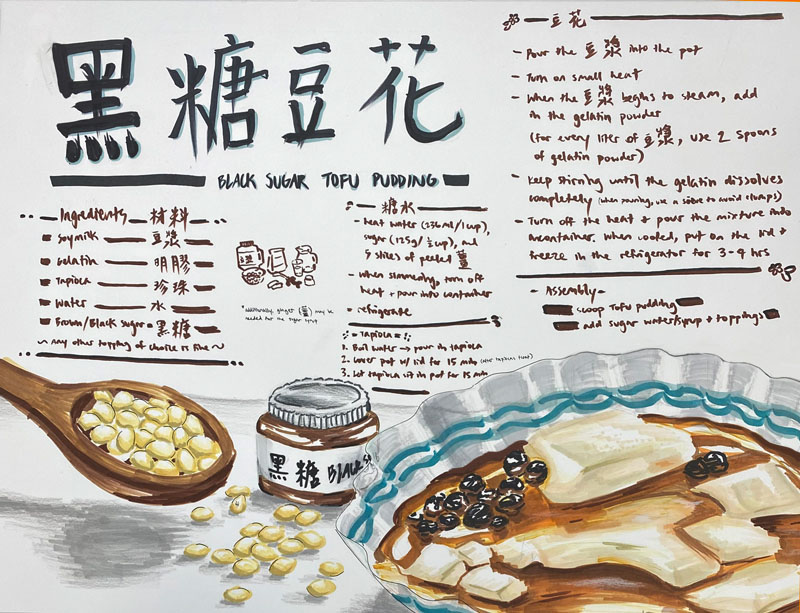 黑糖豆花
BLACK SUGAR TOFU PUDDING
Ingredients 材料
Soymilk 豆漿
Gelatin 明膠
Tapioca 珍珠
Water 水
Brown/Black Sugar 黑糖
~ Any other topping of choice is fine ~
*additionally ginger (薑) may be
needed for the sugar syrup
糖水
- heat water (236ml/1cup),
sugar (125g/ ½cup), and
5 slices of peeled 薑
- When simmering, turn off
heat + pour into container
- refrigerate
Tapioca
1. Boil water → pour in tapioca
2. Cover pot w/ lid for 15 min (after tapioca float)
3. Let tapioca sit in pot for 15 min
豆花
- Pour the 豆漿 into the pot
- Turn on small heat
- When the 豆漿 begins to steam, add
in the gelatin powder
(for every liter of 豆漿, use 2 spoons
of gelatin powder)
- Keep stirring until the gelatin dissolves
completely (when pouring, use a sieve to avoid clumps)
- Turn off the heat + pour the mixture into
a container. When cooled, put on the lid +
freeze in the refrigerator for 3-4 hrs
- Assembly -
scoop Tofu pudding
add sugar water/syrup + toppings
黑糖 BLACK